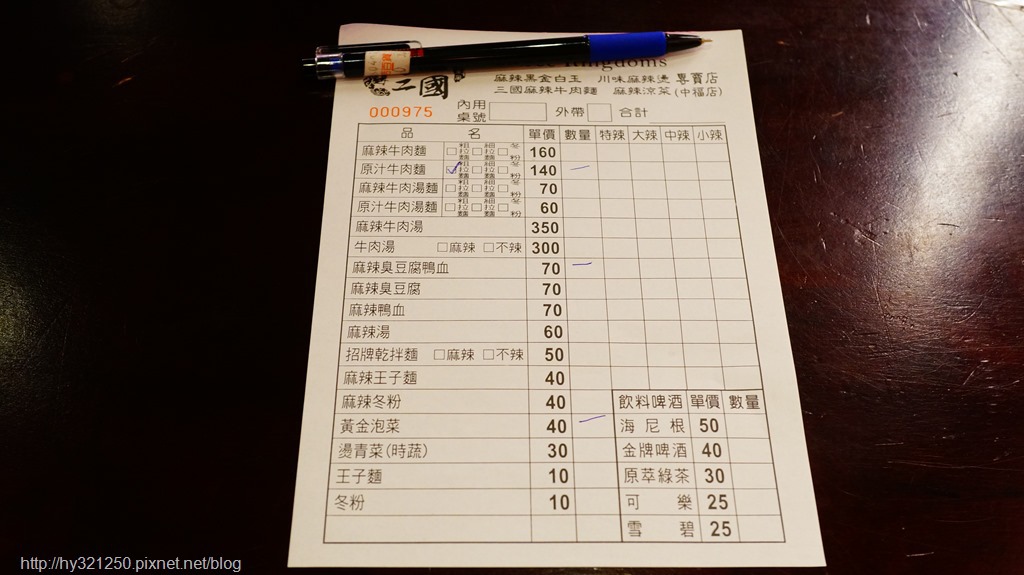 Kingdoms
三國
麻辣黑金白玉 川味麻辣燙 專賣店
三國麻辣牛肉麵 麻辣涼菜(中福店)
000975 內用桌號 外帶 合計
品名 單價 數量 特辣 大辣 中辣 小辣
麻辣牛肉麵 □粗拉麵 □細拉麵 □冬粉 160
原汁牛肉麵 ☑粗拉麵 □細拉麵 □冬粉 140 一
麻辣牛肉湯麵 □粗拉麵 □細拉麵 □冬粉 70
原汁牛肉湯麵 □粗拉麵 □細拉麵 □冬粉 60
麻辣牛肉湯 350
牛肉湯 □麻辣 □不辣 300
麻辣臭豆腐鴨血 70 一
麻辣臭豆腐 70
麻辣鴨血 70
麻辣湯 60
招牌乾拌麵 □麻辣 □不辣 50
麻辣王子麵 40
麻辣冬粉 40
黃金泡菜 40 一
燙青菜(時蔬) 30
王子麵 10
冬粉 10
飲料啤酒 單價 數量
海尼根 50
金牌啤酒 40
原萃綠茶 30
可樂 25
雪碧 25
http://hy321250.pixnet.net/blog